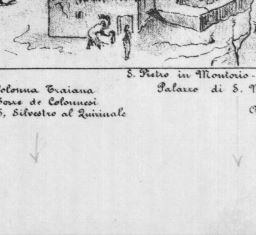 S. Pietro in Montorio -
Colonna Traiana
Torre de Colonnesi
S. Silvestro al Quirinale
Palazzo di S.